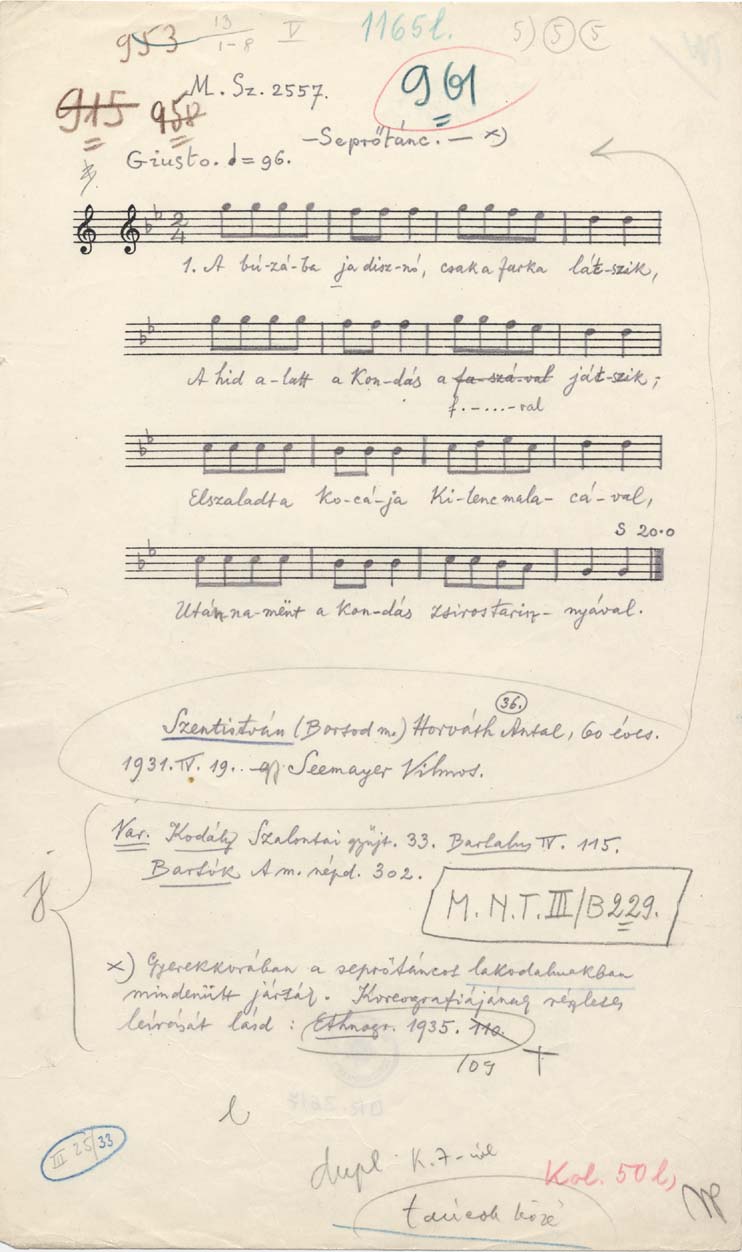 953 13/1-8 V 1165l. 5) 5 5
M. Sz. 2557. 961
915 958
Giusto. ♩=96. –Seprőtánc. – x)
2/4
1. A bú-zá-ba ja disz-nó, csak a farka lát-szik,
A hid a-latt a Kon-dás a fa-szá-val ját-szik;
f.-...-val
Elszaladt a ko-cá-ja Ki-lenc mala-cá-val,
S 20.0
Után na-mënt a kon-dás zsiros tarisz-nyával.
36.
Szentistván (Borsod m.) Horváth Antal, 60 éves.
1931. IV. 19. gy Seemayer Vilmos.
Var. Kodály Szalontai gyűjt. 33. Bartalus IV. 115.
Bartók A m. népd. 302.
M. N. T. III/B 229.
x) Gyerekkorában a seprőtáncot lakodalmakban
mindenütt járták. Koreografiájának részletes
leirását lásd: Ethnogr. 1935. 110.
109 †
l
III 25/33
dupl. K. 7-
Kol. 50 l,
táncok közé